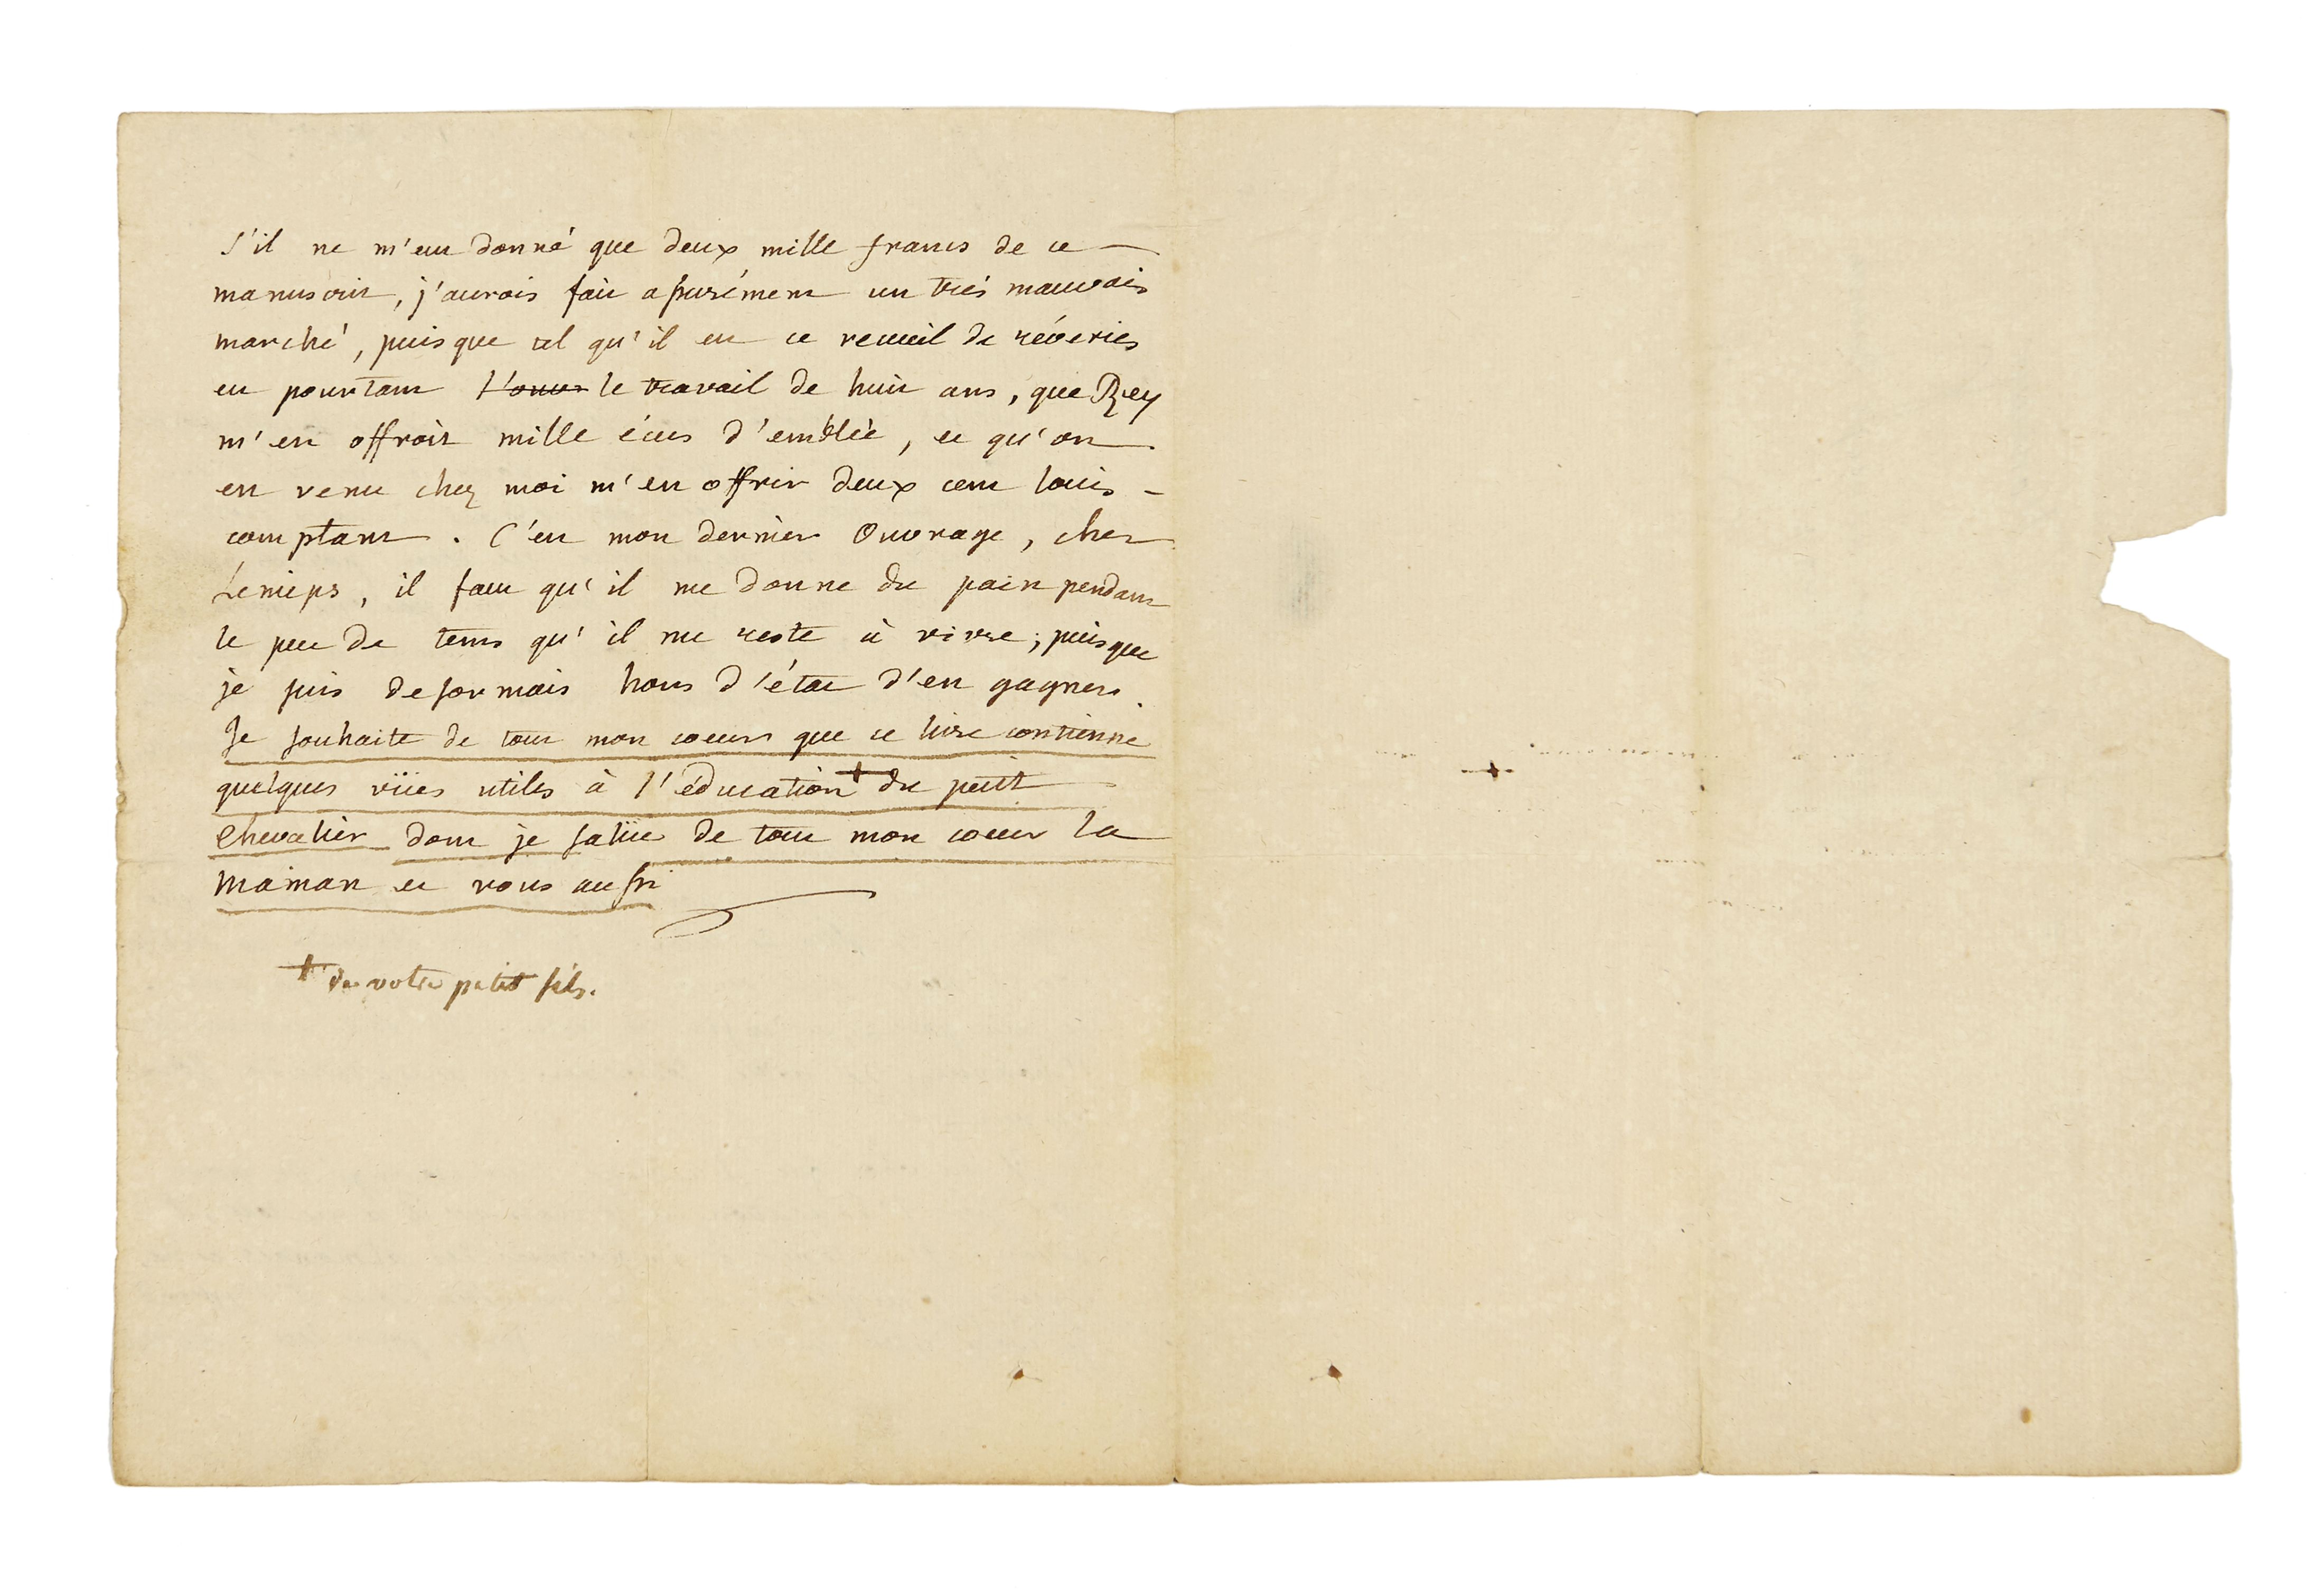 S'il ne m'eut donné que deux mille francs de ce
manuscrit, j'aurois fait assurément un très mauvais
marché, puisque tel qu'il est ce recueil de rêveries
est pourtant le travail de huit ans, que Rey
m'en offroit mille écus d'emblée, et qu'on
est venu chez moi m'en offrir deux cent louis
comptant. C'est mon dernier Ouvrage, cher
Lenieps, il faut qu'il me donne du pain pendant
le peu de tems qu'il me reste à vivre, puisque
je suis desormais hors d'état d'en gagner.
Je souhaite de tout mon coeur que ce livre contienne
quelques vües utiles à l'éducation + du petit
Chevalier dont je salüe de tout mon coeur la
maman et vous aussi
+ de votre petit fils.